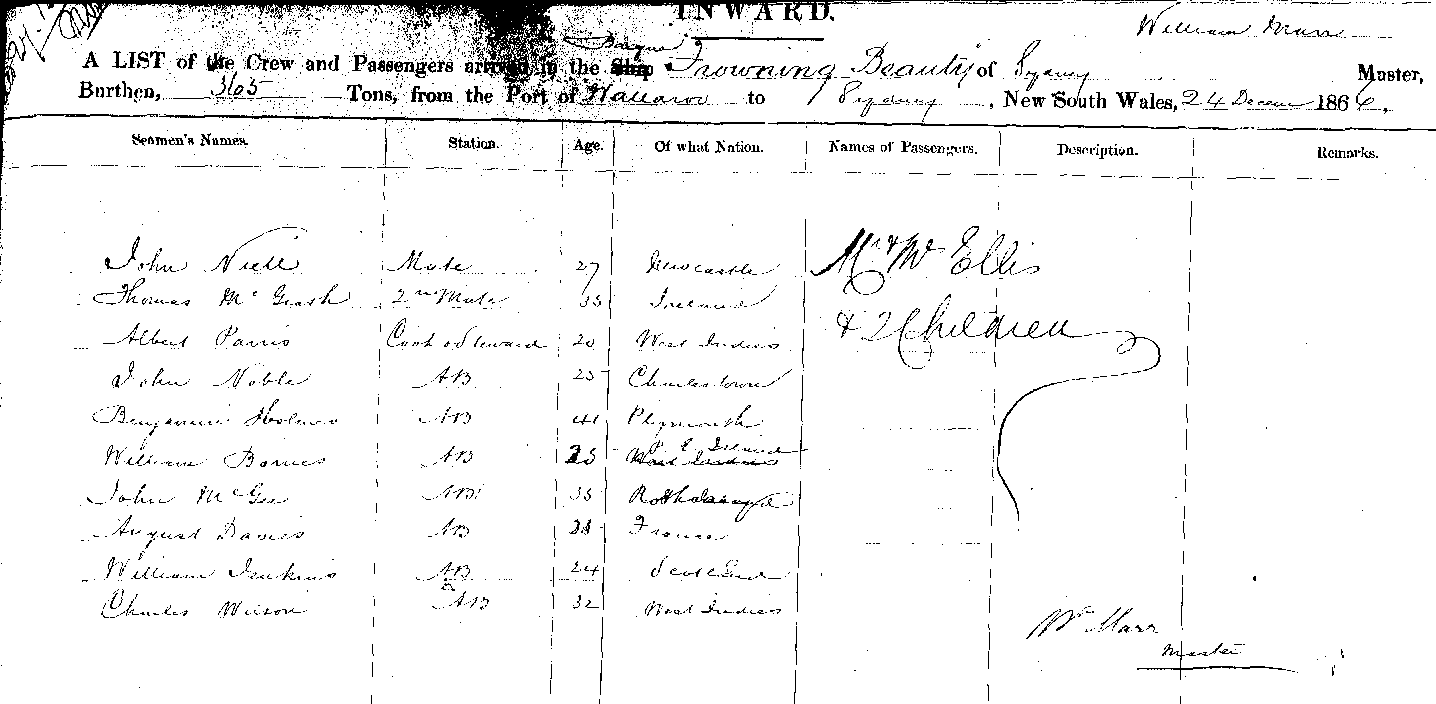 INWARD.
William Marr
A LIST of the Crew and Passengers arrived in the Ship Barque Frowning Beauty of Sydney Master,
Burthen, 365 Tons, from the Port of Wallaroo to Sydney, New South Wales, 24 Decem 1866.
Seamen's Names. Station. Age. Of what Nation. Names of Passengers. Description. Remarks.
John Niell Mate 27 Newcastle Mr & Mrs Ellis
Thomas Mc Grath 2nd Mate 35 Ireland
& 2 Children
Albert Parris Cook & Steward 20 West Indies
John Noble AB 25 Charlestown
Benjamin Holmes AB 41 Plymouth
William Barnes AB 25 P. E. Island West Indies
John McGee AB 35
August Davies AB France
William Jenkins AB 24 Scotland
Charles Wilson AB 32 West Indies
Wm Marr
Master